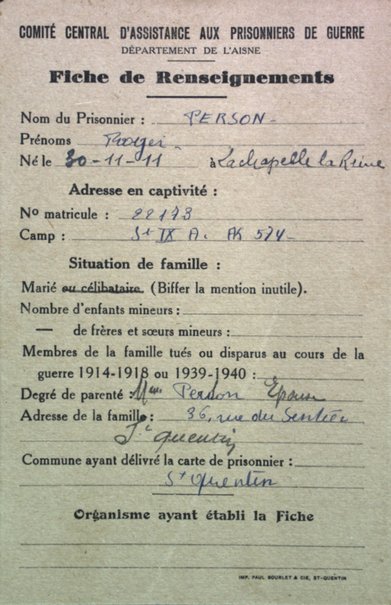 COMITÉ CENTRAL D'ASSISTANCE AUX PRISONNIERS DE GUERRE
DÉPARTEMENT DE L'AISNE
Fiche de Renseignements
Nom du Prisonnier : PERSON
Prénoms Roger
Né le 30-11-11 à Lachapelle la Reine
Adresse en captivité :
No matricule : 22173
Camp : St IX A. AK 574
Situation de famille :
Marié ou célibataire. (Biffer la mention inutile).
Nombre d'enfants mineurs :
— de frères et sœurs mineurs :
Membres de la famille tués ou disparus au cours de la
guerre 1914-1918 ou 1939-1940 :
Degré de parenté : Mme Person Epouse
Adresse de la famille : 36, rue du Sentier
St Quentin
Commune ayant délivré la carte de prisonnier :
St Quentin
Organisme ayant établi la Fiche
IMP. PAUL BOURLET & CIE, ST-QUENTIN